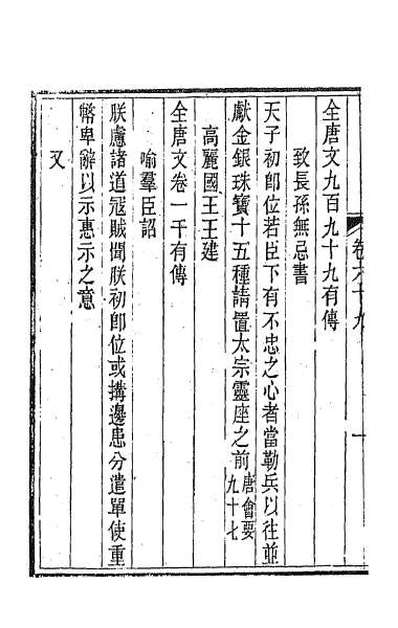 全唐文九百九十九有傳
致長孫無忌書
天子初卽位若臣下有不忠之心者當勒兵以往並
獻金銀珠寶十五種請置太宗靈座之前唐會要九十七
高麗國王王建
全唐文卷一千有傳
喻羣臣詔
朕慮諸道寇賊聞朕初卽位或搆邊患分遣單使重
幣卑辭以示惠示之意
又
卷六十九
一